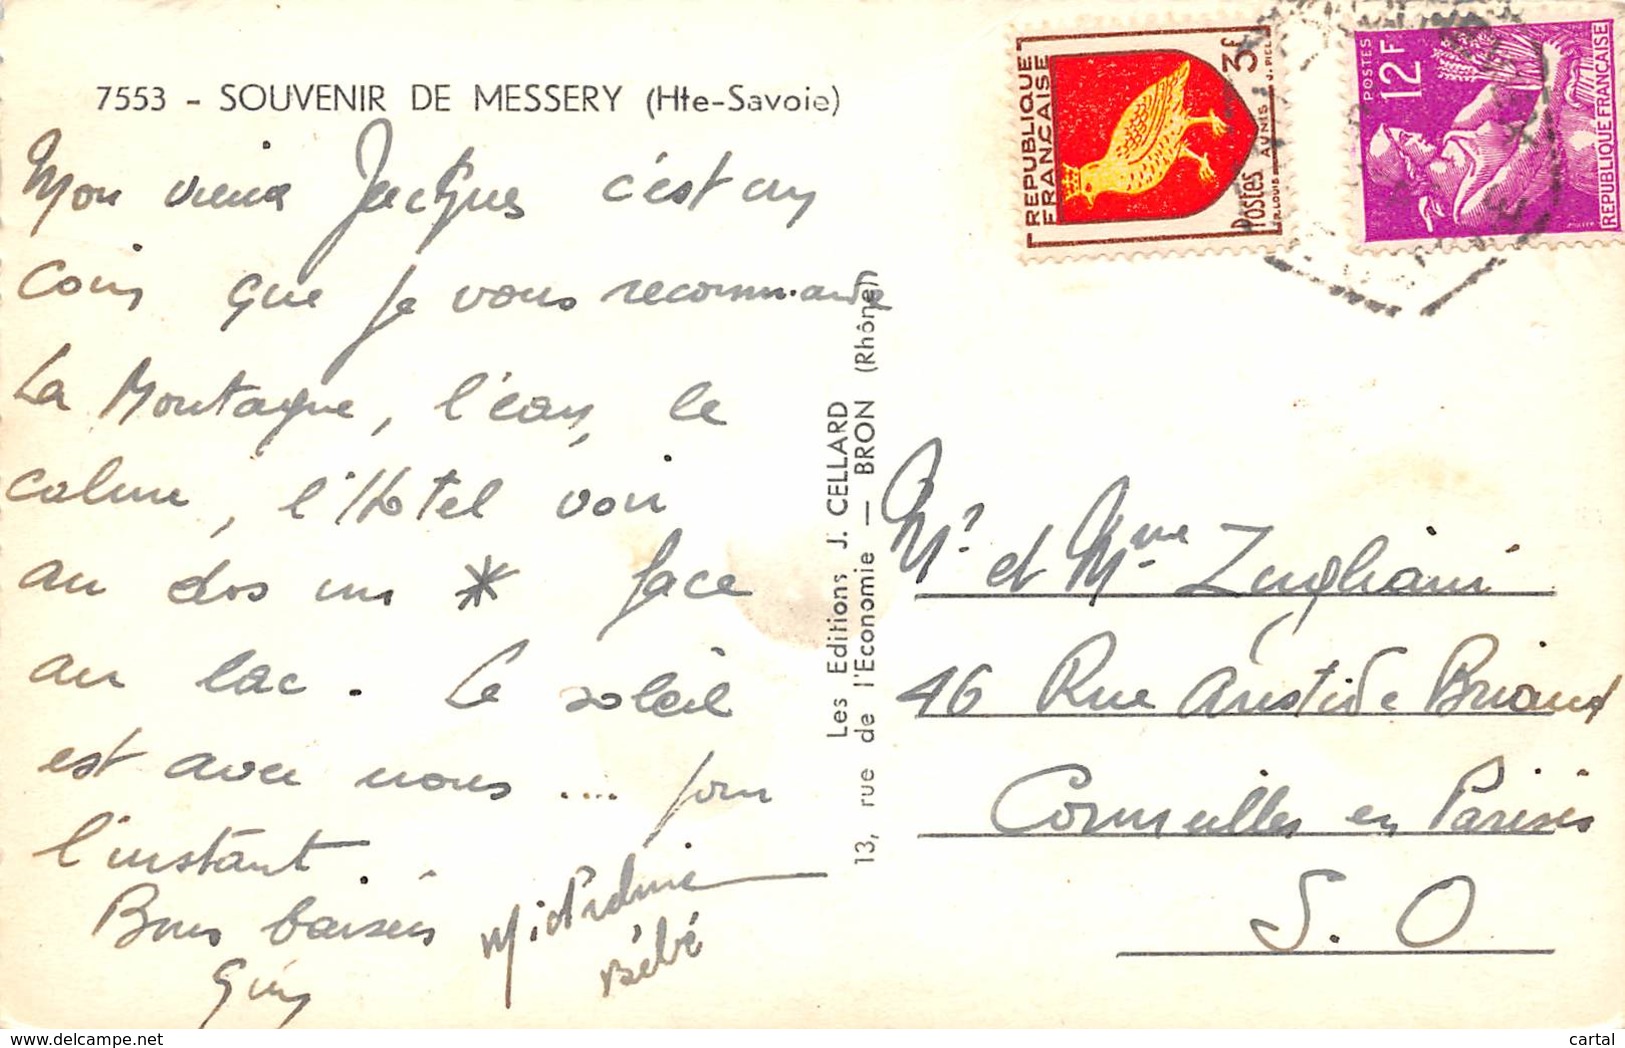 7553 - SOUVENIR DE MESSERY (Hte-Savoie)
Mon vieux Jacques c'est un
coin que je vous recommande
La Montagne, l'eau, le
calme, l'Hotel voir
au dos un * face
au lac. Le soleil
est avec nous .... pour
l'instant.
Bons baisers
Guy
Bébé
Les Editions J. CELLARD
13, rue de l'Economie — BRON (Rhône)
REPUBLIQUE
FRANÇAISE
3F
Postes AUNIS
R.LOUIS J.PIEL
POSTES
12F
REPUBLIQUE FRANÇAISE
Mr et Mme
46 Rue Aristide Briand
Cormeilles en Parisis
S. O
www.delcampe.net
cartal